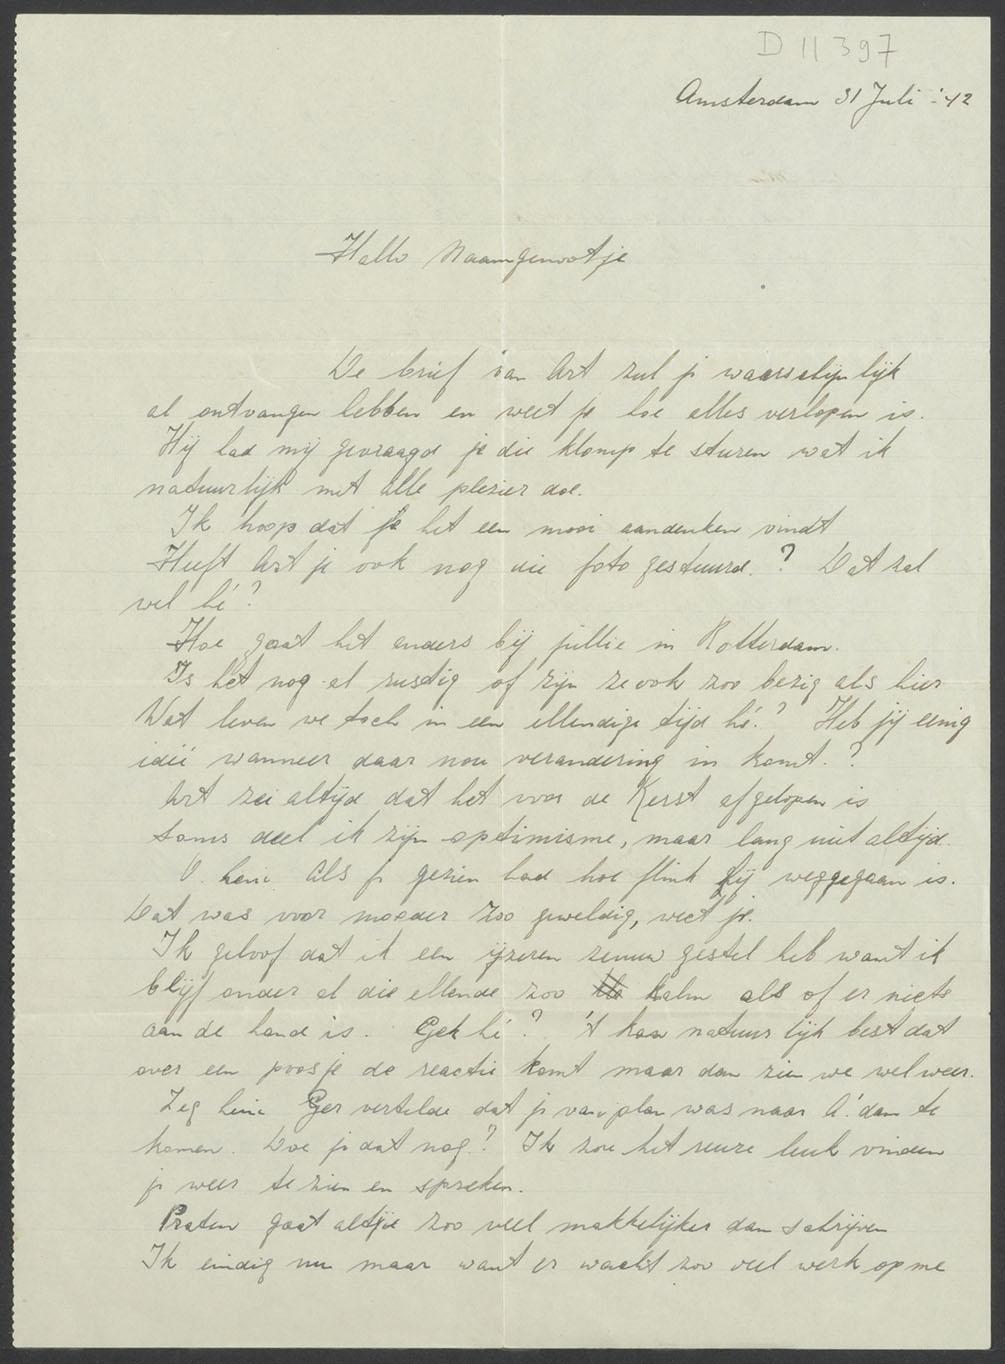 D 11397
Amsterdam 31 Juli '42
Hallo Naamgenootje
De brief van Art zul je waarschijnlijk
al ontvangen hebben en weet je hoe alles verlopen is.
Hij had mij gevraagd je die klomp te sturen wat ik
natuurlijk met alle plezier doe.
Ik hoop dat je het een mooi aandenken vindt
Heeft Art je ook nog die foto gestuurd.? Dat zal
wel hé?
Hoe gaat het anders bij jullie in Rotterdam.
Is het nog al rustig of zijn ze ook zoo bezig als hier
Wat leven we toch in een ellendige tijd hé.? Heb jij eenig
ideé wanneer daar nou verandering in komt.?
Art zei altijd dat het voor de Kerst afgelopen is
soms deel ik zijn optimisme, maar lang niet altijd.
O. heini als je gezien had hoe flink hij weggegaan is.
Dat was voor moeder zoo geweldig, weet je.
Ik geloof dat ik een ijzeren zenuw gestel heb want ik
blijf onder al die ellende zoo kalm als of er niets
aan de hand is. Gek hé? 't kan natuurlijk best dat
over een poosje de reactie komt maar dan zien we wel weer.
Zeg heini Ger vertelde dat je van plan was naar A'dam te
komen. Doe je dat nog? Ik zou het reuze leuk vinden
je weer te zien en spreken.
Praten gaat altijd zoo veel makkelijker dan schrijven
Ik eindig nu maar want er wacht zoo veel werk op me